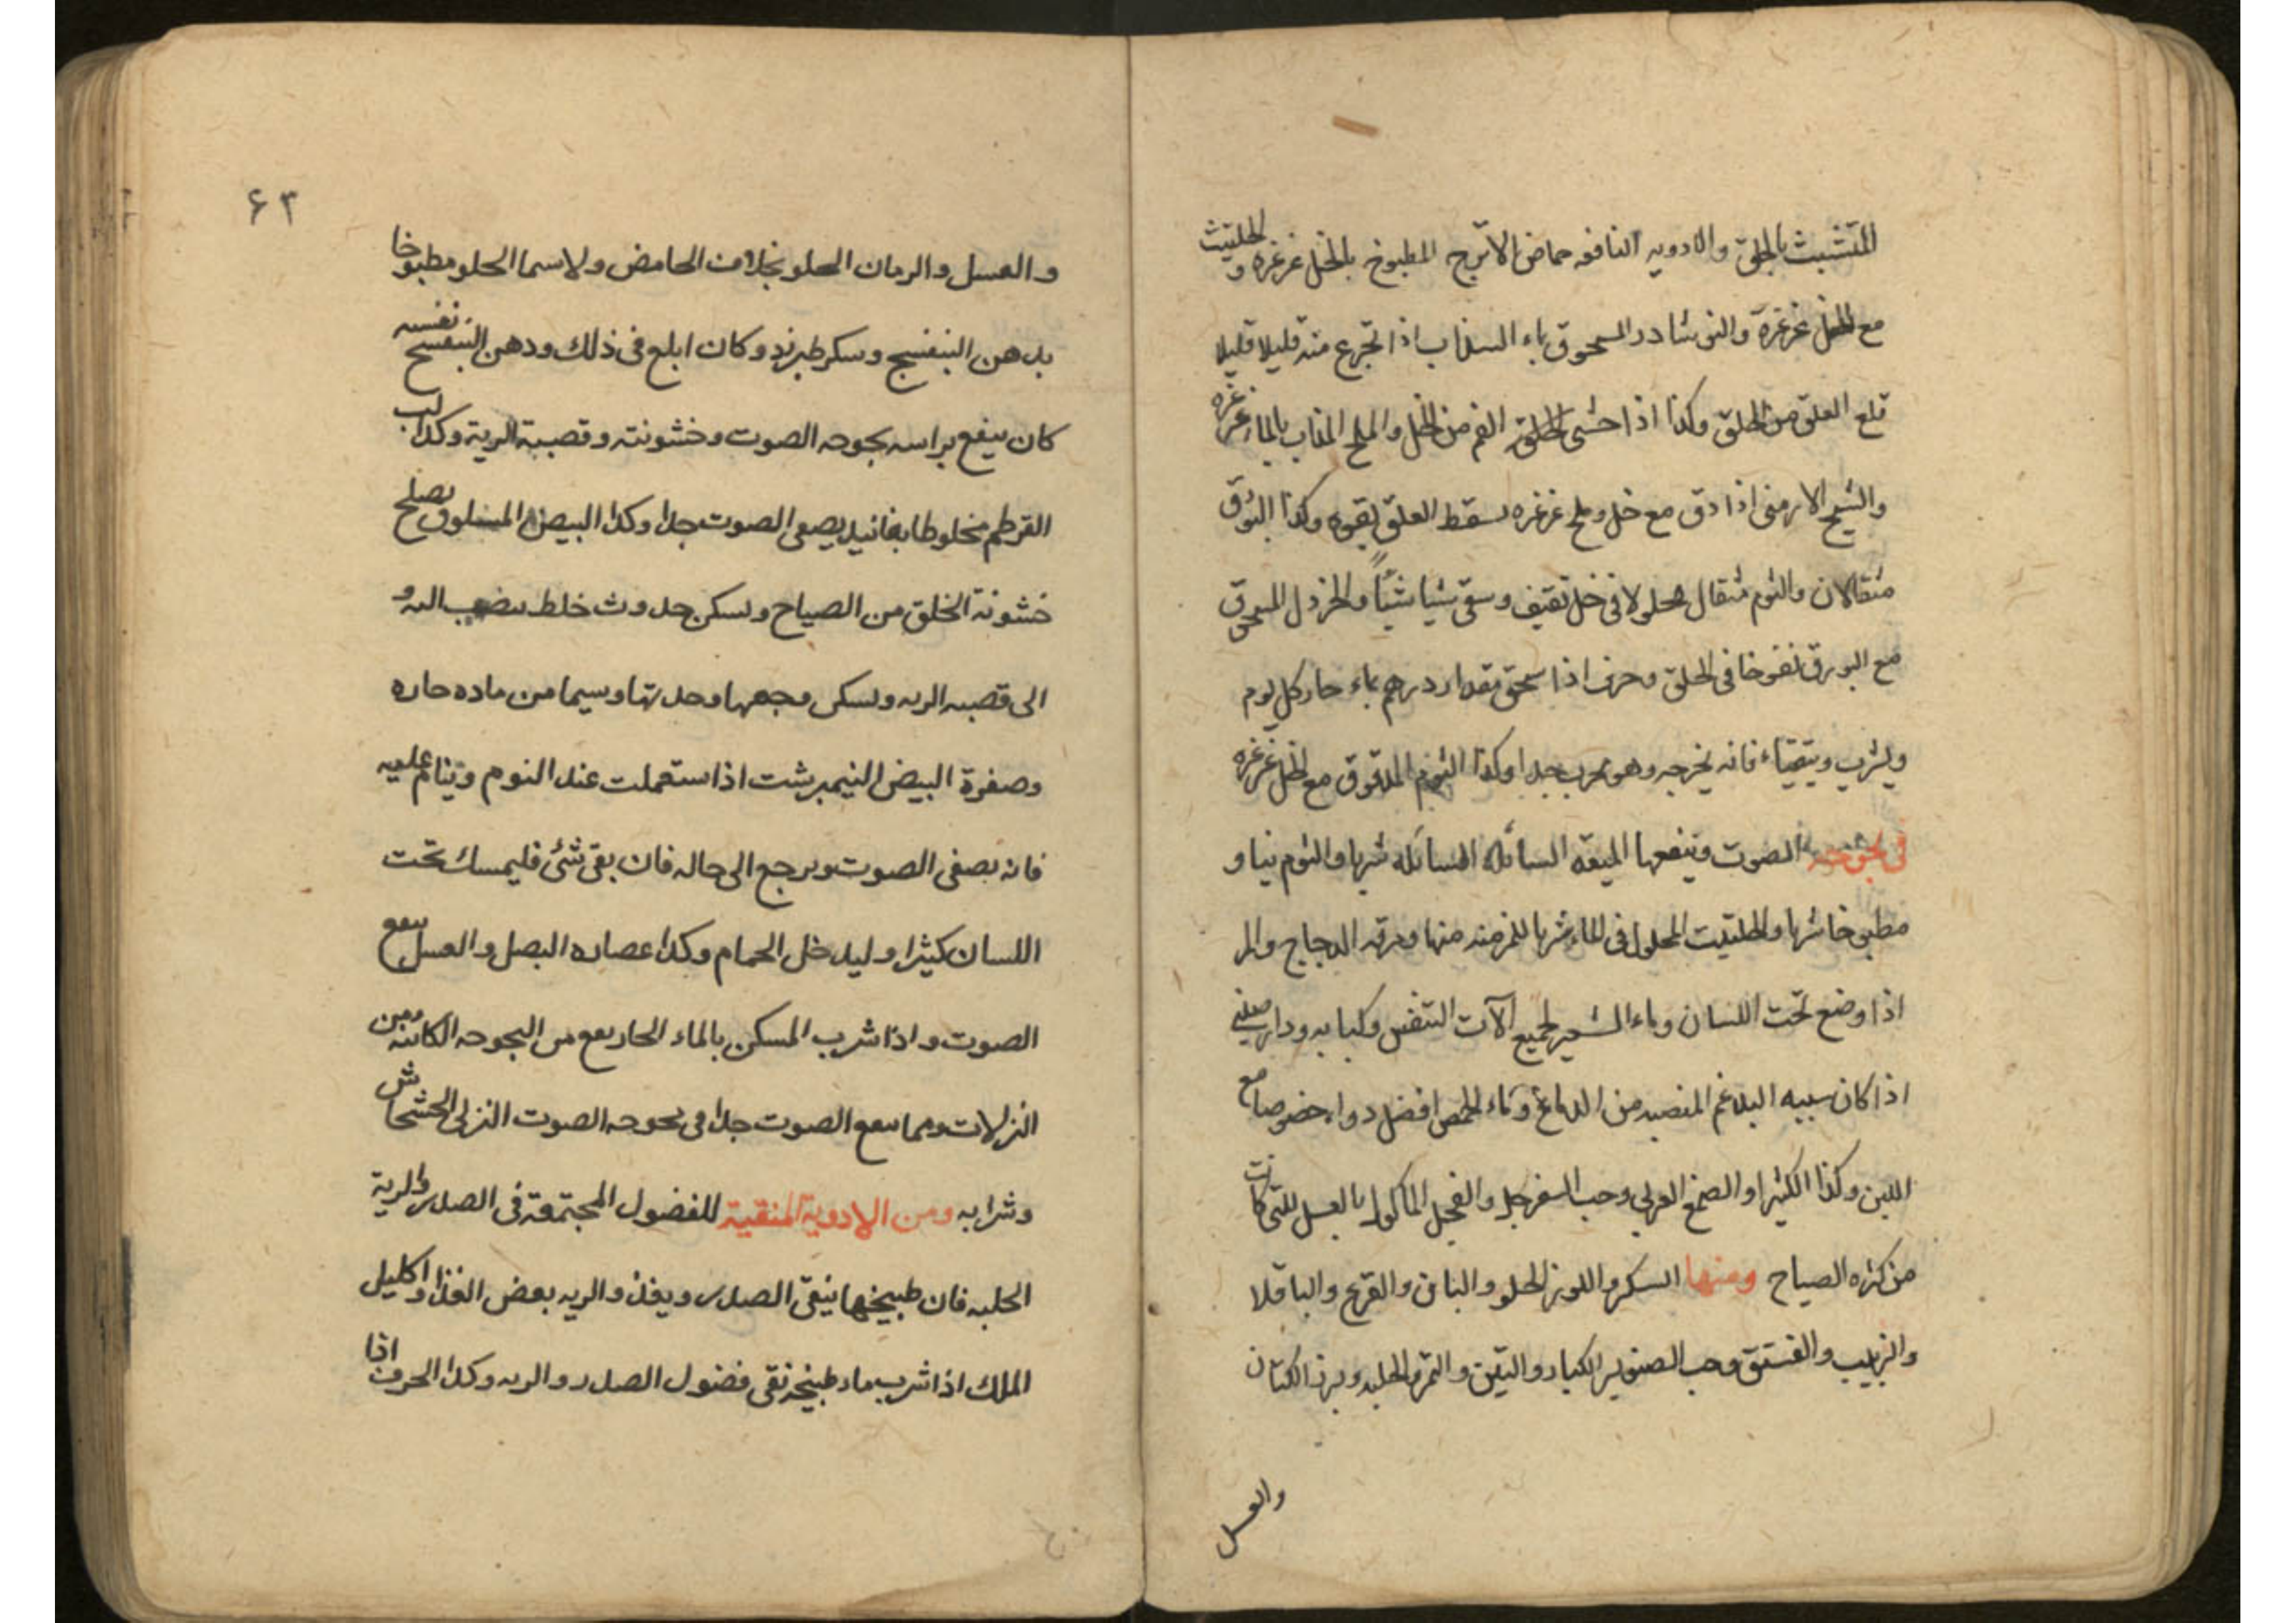 المتشبث بالحلق والادويه النافعه حماض الاترج المطبوخ بالخل غرغره و الحلتيث
مع الخل غرغرة والنوشادر المسحوق بماء السذاب اذا تجرع منه قليلا قليلا
قلع العلق من الحلق وكذا اذا حشى الحلق الفم من الخل والملح المذاب بالماء غرغره
والشيح الارمنى اذا دق مع خل وملح غرغره سقط العلق بقوه وكذا البورق
مثقالان والثوم مثقال محلولا فى خل ثقيف وسقى شيا شيئاً والخردل المسحوق
مع البورق نفوخا فى الحلق وحرف اذا سحق مقدار درهم بماء حار كل يوم
ويشرب ويتقياء فانه يخرجه وهو مجرب جدا وكذا الثوم المدقوق مع الخل غرغره
فى بحوحة الصوت وينفعها الميعه السائله السائله شربا والثوم نيا و
مطبوخا شربا والحلتيت المحلول فى الماء شربا للمزمنه منها ومرقه الدجاج والمر
اذا وضع تحت اللسان وماء الشعير لجميع الآت التنفس وكبابه ودارصينى
اذا كان سببه البلاغم المنصبه من الدماغ وماء الحمص افضل دواء خصوصا مع
اللبن وكذا الكثيرا والصمغ العربى وحب السفرجل والفجل الماكول بالعسل للتى كانت
من كثره الصياح ومنها السكر واللوز الحلو والبان والقرع والباقلا
والزبيب والفستق وحب الصنوبر الكبار والتين والتمر والحلبه وبزر الكتان
والعسل
۶۳
والعسل والرمان الحلو بخلاف الحامض ولاسما الحلو مطبوخا
بدهن البنفسج وسكر طبرزد وكان ابلع فى ذلك ودهن البنفسج نفسه
كان ينفع براسه بحوحه الصوت وخشونته وقصبة الرية وكذا لب
القرطم مخلوطا بفانيد يصفى الصوت جدا وكذا البيض المسلوق يصلح
خشونة الحلق من الصياح ويسكن حدوث خلط ينصب اليه و
الى قصبه الريه ويسكن وجعها وحدتها وسيما من ماده حاره
وصفرة البيض النيمبرشت اذا ستعملت عند النوم وينام عليه
فانه يصفى الصوت ويرجع الى حاله فان بقى شئ فليمسك تحت
اللسان كثيرا وليدخل الحمام وكذا عصاره البصل والعسل ينفع
الصوت واذا شرب المسكن بالماء الحار نفع من البحوحه الكائنه من
النزلات ومما ينفع الصوت جدا فى بحوحه الصوت النزلى الخشخاش
وشرابه ومن الادوية المنقية للفضول المجتمعة فى الصدر والرية
الحلبه فان طبيخها ينقى الصدر ويغذ والريه بعض الغذا و اكليل
الملك اذا شرب ماء طبيخه نقى فضول الصدر والريه وكذا الحرف اذا